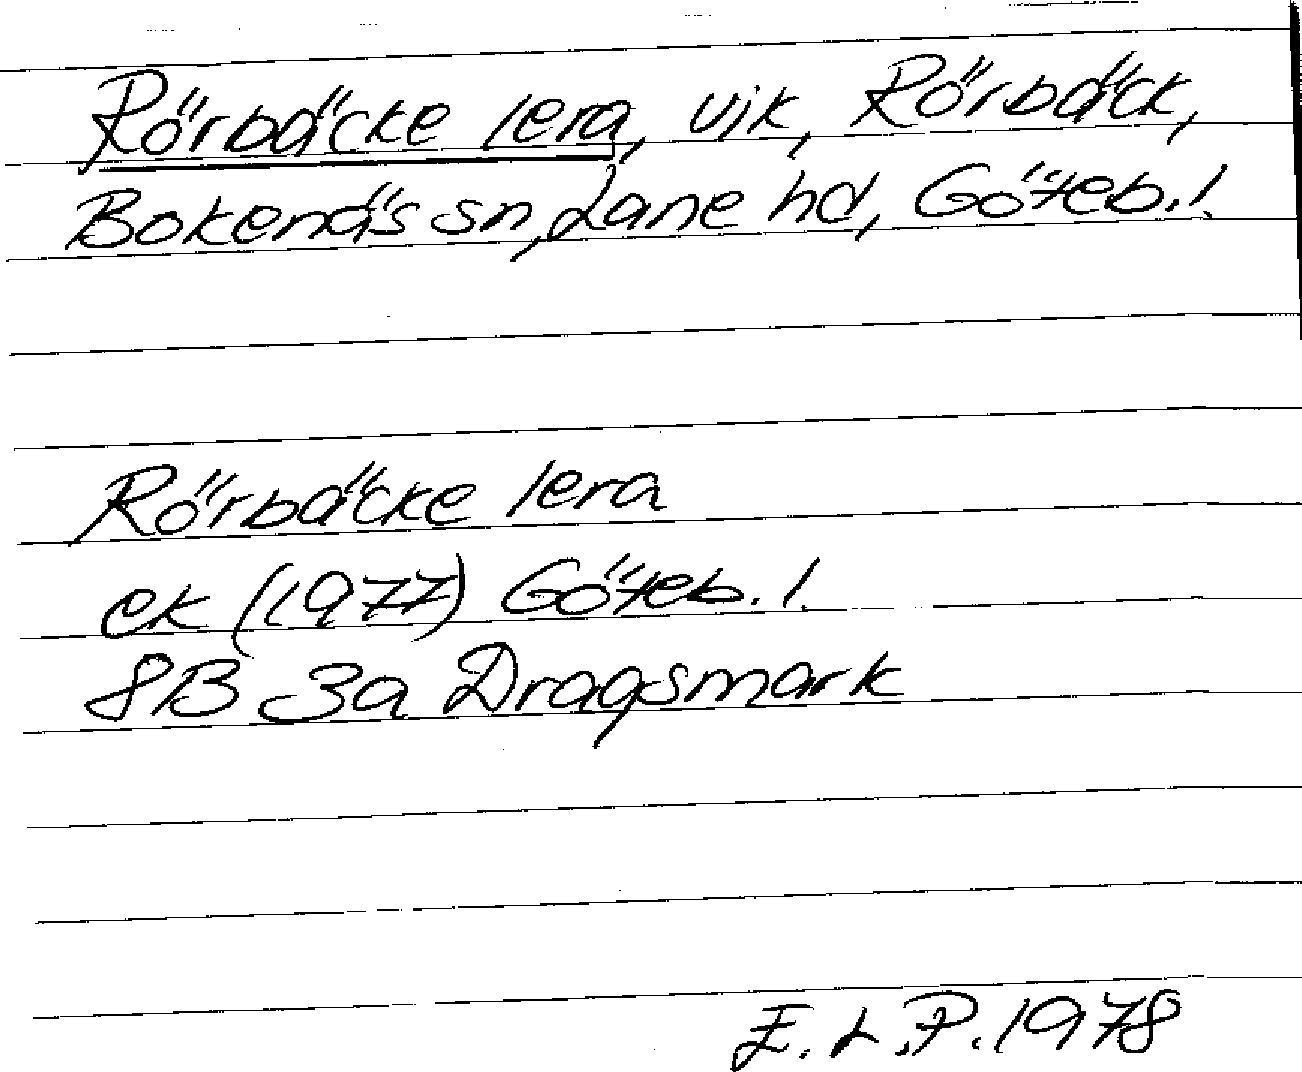 Rörbäcke lera, vik, Rörbäck,
Bokenäs sn, Lane hd, Göteb. l.
Rörbäcke lera
ek (1977) Göteb. l.
8B 3a Dragsmark
E. L. P. 1978